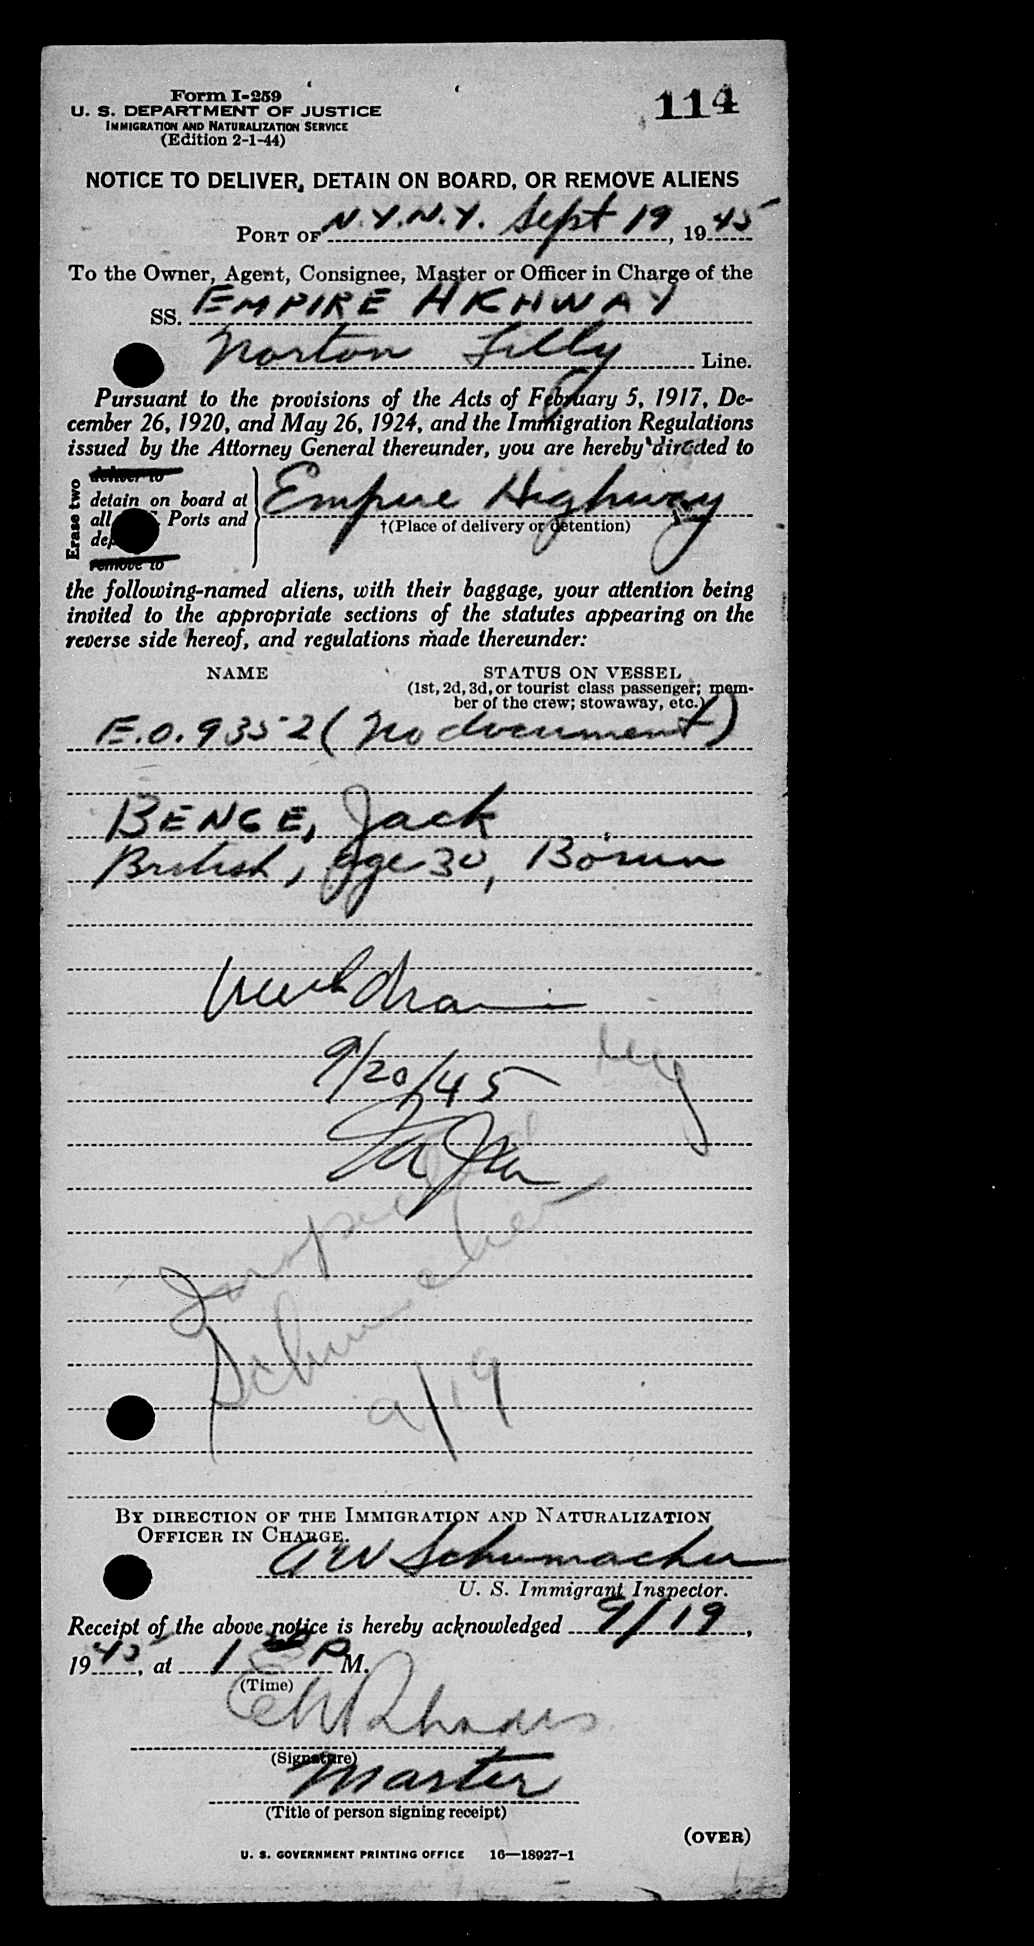 Form I-259
U. S. DEPARTMENT OF JUSTICE
IMMIGRATION AND NATURALIZATION SERVICE
(Edition 2-1-44)
114
NOTICE TO DELIVER, DETAIN ON BOARD, OR REMOVE ALIENS
PORT OF N.Y.N.Y. Sept 19, 1945
To the Owner, Agent, Consignee, Master or Officer in Charge of the
SS. EMPIRE HKHWAY
Norton Lilly Line.
Pursuant to the provisions of the Acts of February 5, 1917, De-
cember 26, 1920, and May 26, 1924, and the Immigration Regulations
issued by the Attorney General thereunder, you are hereby directed to
Erase two
deliver to
detain on board at
all Ports and
remove to
Empire Highway
†(Place of delivery or detention)
the following-named aliens, with their baggage, your attention being
invited to the appropriate sections of the statutes appearing on the
reverse side hereof, and regulations made thereunder:
NAME STATUS ON VESSEL
(1st, 2d, 3d, or tourist class passenger; mem-
ber of the crew; stowaway, etc.)
E.O. 9352 (No document)
BENGE, Jack
British, Age 30, Bosun
Withdrawn
9/20/45
Inspector
Schumacher
9/19
BY DIRECTION OF THE IMMIGRATION AND NATURALIZATION
OFFICER IN CHARGE.
AW Schumacher
U. S. Immigrant Inspector.
Receipt of the above notice is hereby acknowledged 9/19,
1945, at 1 P M.
(Time)
Rhodes
(Signature)
Master
(Title of person signing receipt)
(OVER)
U. S. GOVERNMENT PRINTING OFFICE 16—18927-1